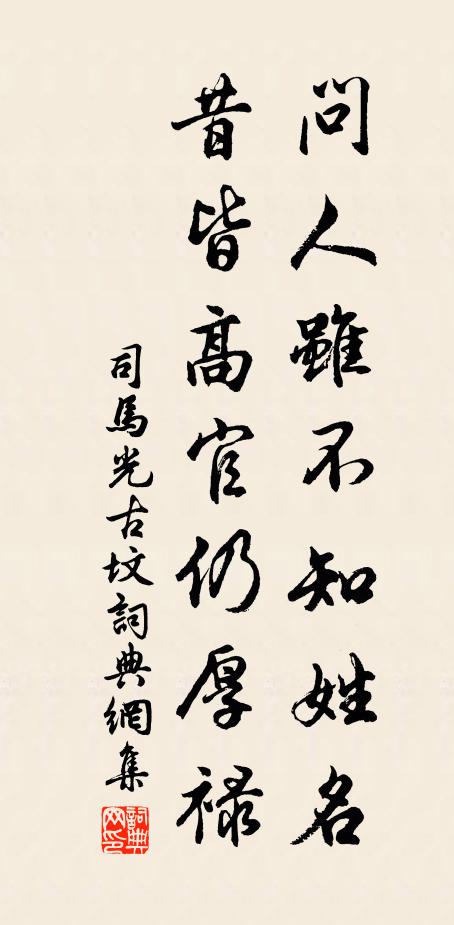 問人雖不知姓名
昔皆高官仍厚禄
司馬光古坟詞典網集
詞典网印